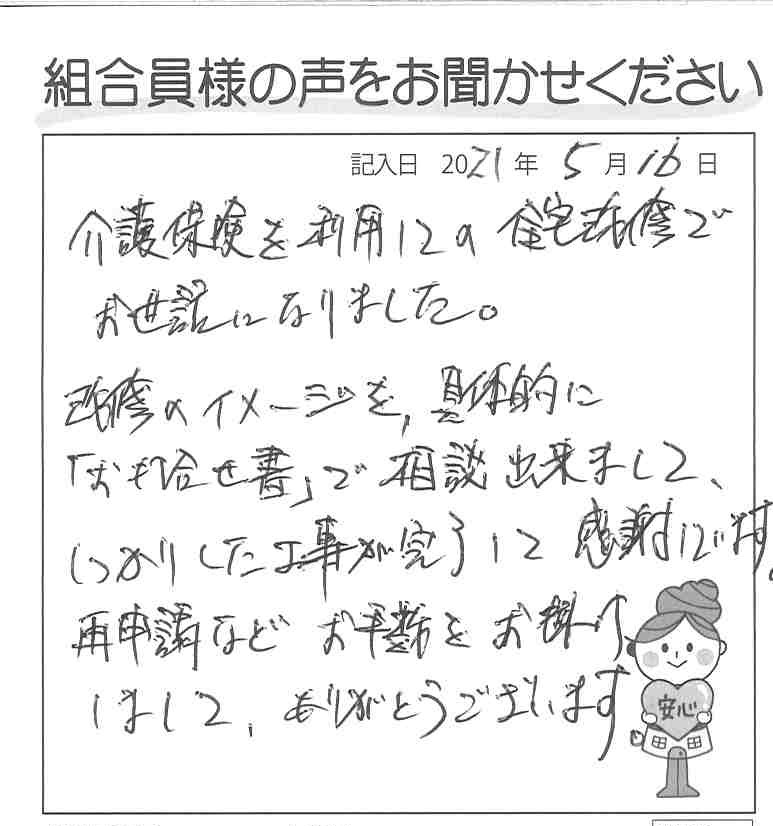 組合員様の声をお聞かせください
記入日 2021年 5月16日
介護保険を利用しての住宅改修で
お世話になりました。
改修のイメージを、具体的に
「お問合せ書」で相談出来まして、
しっかりした工事が完了して感謝です。
再申請などお手数をお掛け
しまして、ありがとうございます。
安心